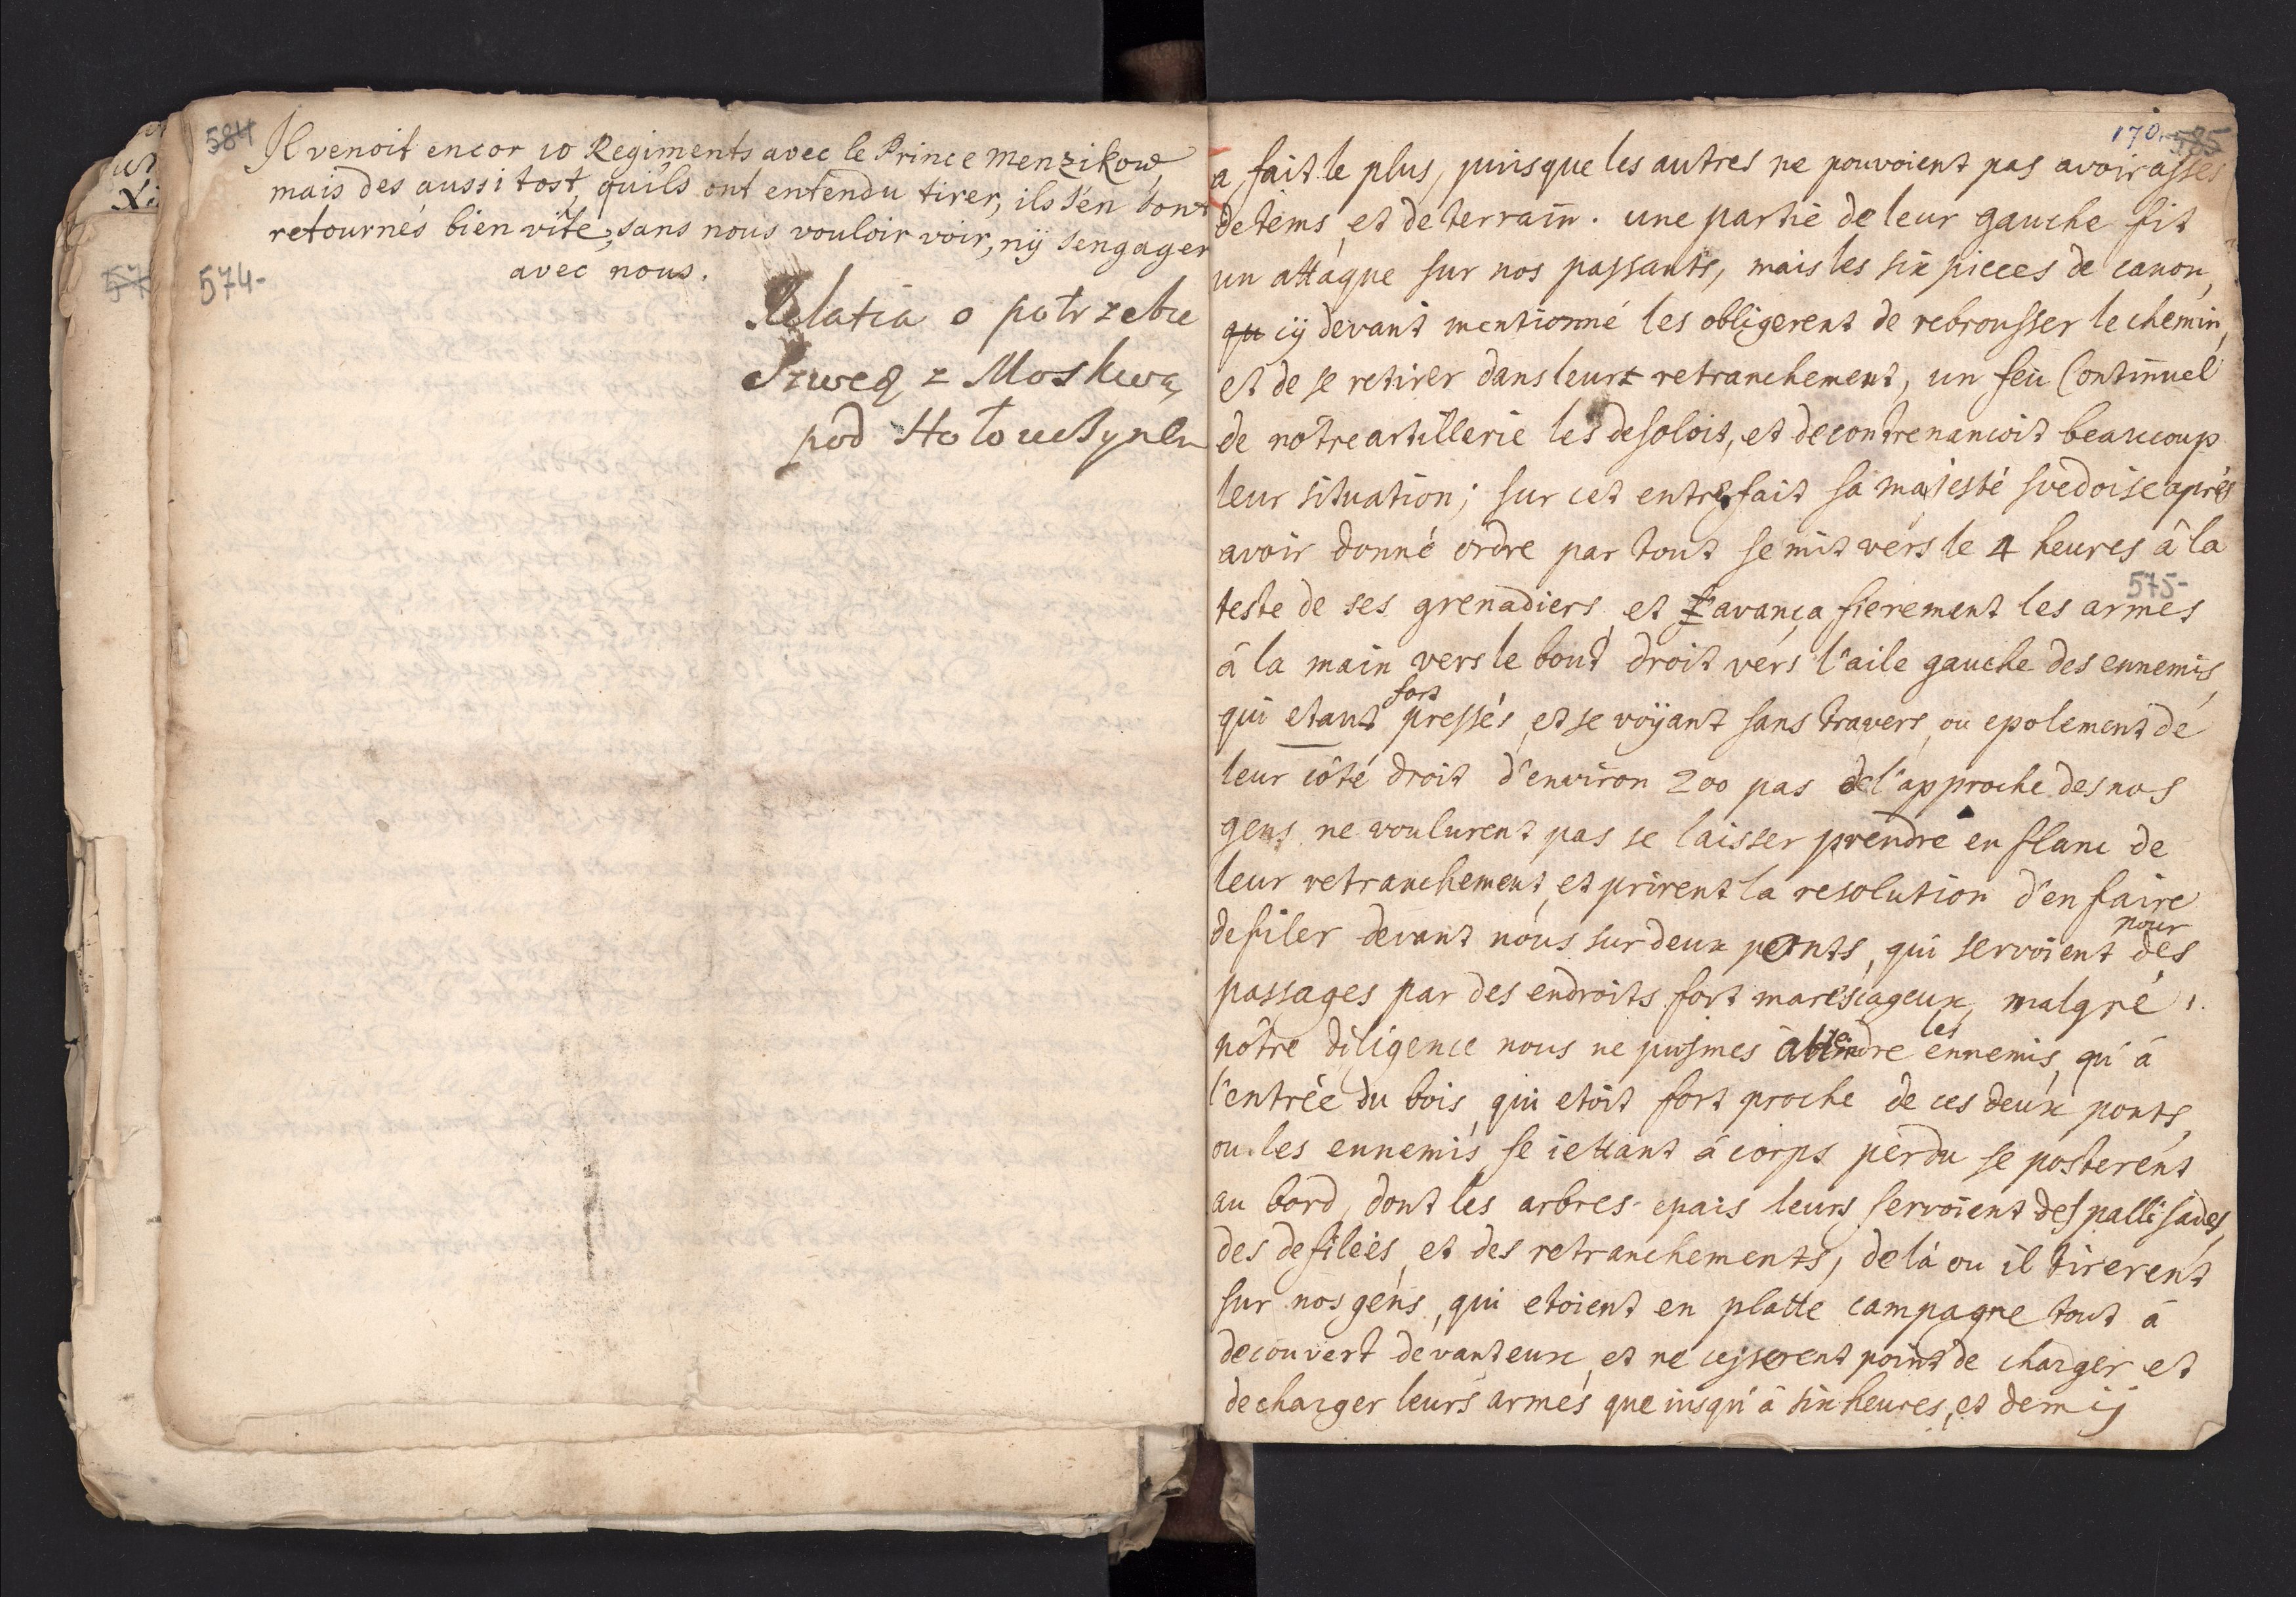 584
Il venoit encor 10 Regiments avec le Prince Menzikow,
mais des aussi tost, quils ont entendu tirer, ils s'en sont
retournés bien vite, sans nous vouloir voir, nÿ sengager
avec nous.
574-
Relatia o potrzebie
Szweda z Moskwą
pod Hołowczynem
170. 585
a fait le plus, puisque les autres ne pouvoient pas avoir assés
de tems, et de terrain. une partie de leur gauche fit
un attaque sur nos passants, mais les six pieces de canon,
qu cÿ devant mentionné les obligerent de rebrousser le chemin,
et de se retirer dans leurs retranchement, un feu Continuel
de nôtre artillerie les desolois, et decontrenancoit beaucoup
leur situation; sur cet entrefait sa majesté svedoise aprés
avoir donné ordre par tout se mit vers le 4 heures â la
575-
teste de ses grenadiers, et s'avança fierement les armes
â la main vers le bout droit vers l'aile gauche des ennemis,
qui etant fort pressés, et se voÿant sans travers, ou epolement de
leur côté droit d'environ 200 pas de l'approche des nos
gens ne voulurent pas se laisser prendre en flanc de
leur retranchement, et prirent la resolution d'en faire
defiler devant nous sur deux ponts, qui servoient pour des
passages par des endroits fort marescageux, malgré
nôtre diligence nous ne pusmes atteindre les ennemis, qu'â
l'entrée du bois, qui etoit fort proche de ces deux ponts,
ou les ennemis se iettant â corps perdu se posterent
au bord, dont les arbres epais leurs servoient des pallisades,
des defileés, et des retranchements, de lá ou il tirerent
sur nos gens, qui etoient en platte campagne tout â
decouvert devant eux, et ne cesserent point de charger et
decharger leurs armes que iusqu'â six heures, et demij